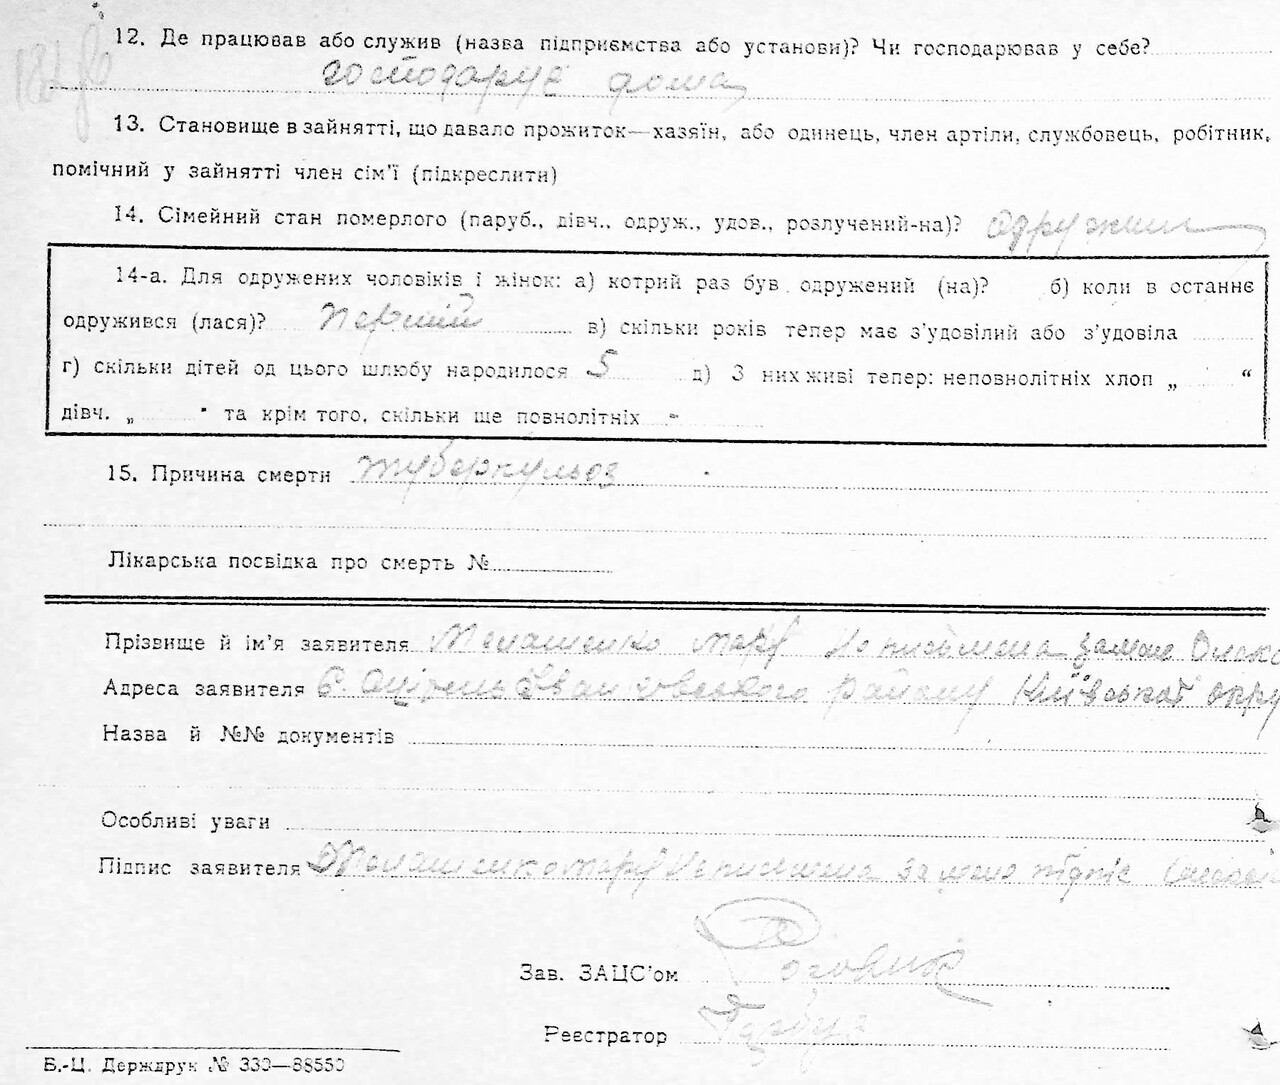 12. Де працював або служив (назва підприємства або установи)? Чи господарював у себе?
господарує дома
13. Становище в зайнятті, що давало прожиток—хазяїн, або одинець, член артіли, службовець, робітник,
помічний у зайнятті член сім'ї (підкреслити)
14. Сімейний стан померлого (паруб., дівч., одруж., удов., розлучений-на)?
14-а. Для одружених чоловіків і жінок: а) котрий раз був одружений (на)? б) коли в останнє
одружився (лася)? Перший в) скільки років тепер має з'удовілий або з'удовіла
г) скільки дітей од цього шлюбу народилося 5 д) З них живі тепер: неповнолітніх хлоп „ “
дівч. „ “ та крім того, скільки ще повнолітніх -
15. Причина смерти туберкульоз
Лікарська посвідка про смерть №
Прізвище й ім'я заявителя
Адреса заявителя району Київської окру
Назва й №№ документів
Особливі уваги
Підпис заявителя
Зав. ЗАЦС'ом
Реєстратор
Б.-Ц. Держдрук № 330—88550